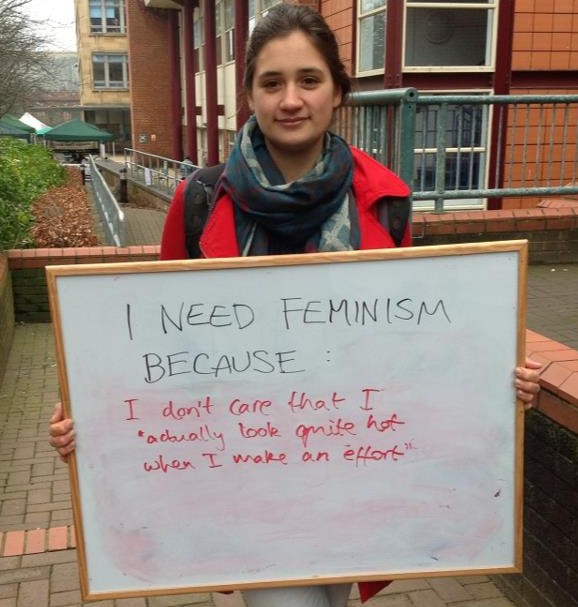 I NEED FEMINISM
BECAUSE :
I don't care that I
"actually look quite hot
when I make an effort"